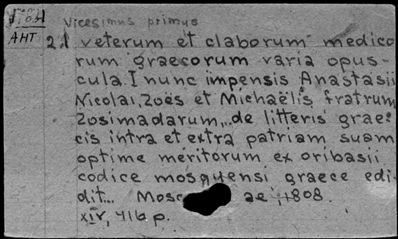 Vicesimus primus
AHT
21 veterum et claborum medico
rum graecorum varia opus-
cula. I nunc impensis Anastasii
Nicolai, Zoës et Michaëlis fratrum
Zosimadarum,.. de litteris grae-
cis intra et extra patriam suam
optime meritorum ex oribasii
codice mosquensi graece edi-
dit... Mosc ae 1808.
XIV, 416 p.